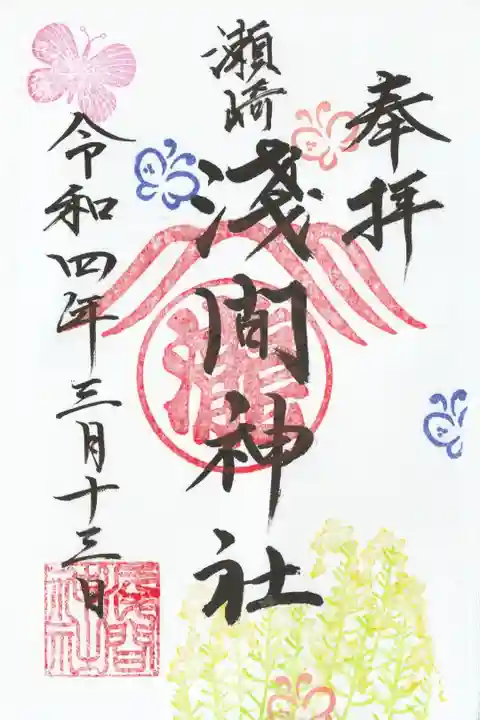 奉拝
瀬崎
淺間神社
令和四年三月十三日
淺間神社